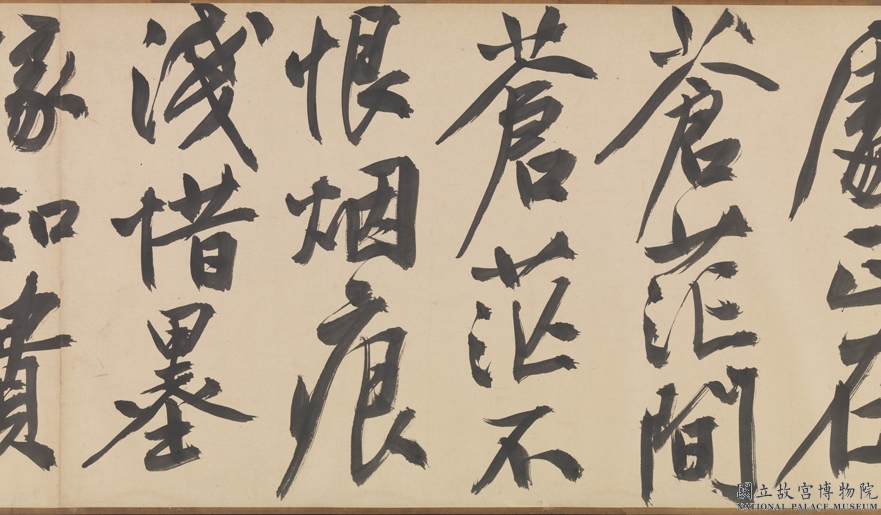 處正在
蒼茫間
蒼茫不
恨烟痕
淺惜墨
知費
國立故宮博物院
NATIONAL PALACE MUSEUM